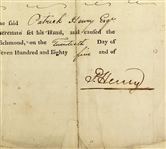 he said Patrick Henry Esqr
hereunto set his Hand, and caused the
Richmond, on the Twentieth Day of
Seven Hundred and Eighty five and of
P. Henry